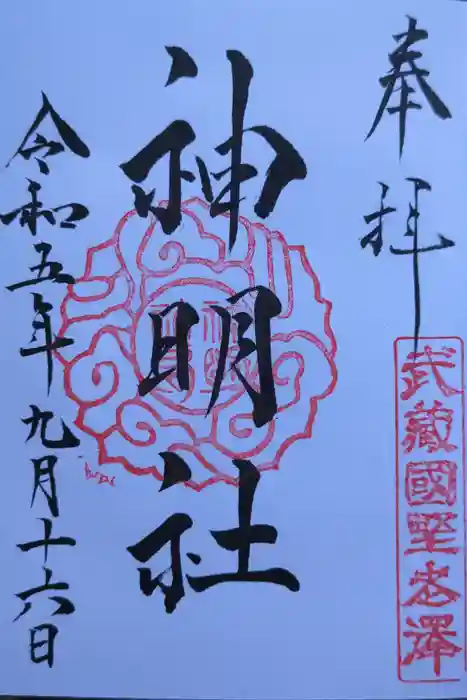 奉拝
武藏國野忠澤
神明社
令和五年九月十六日